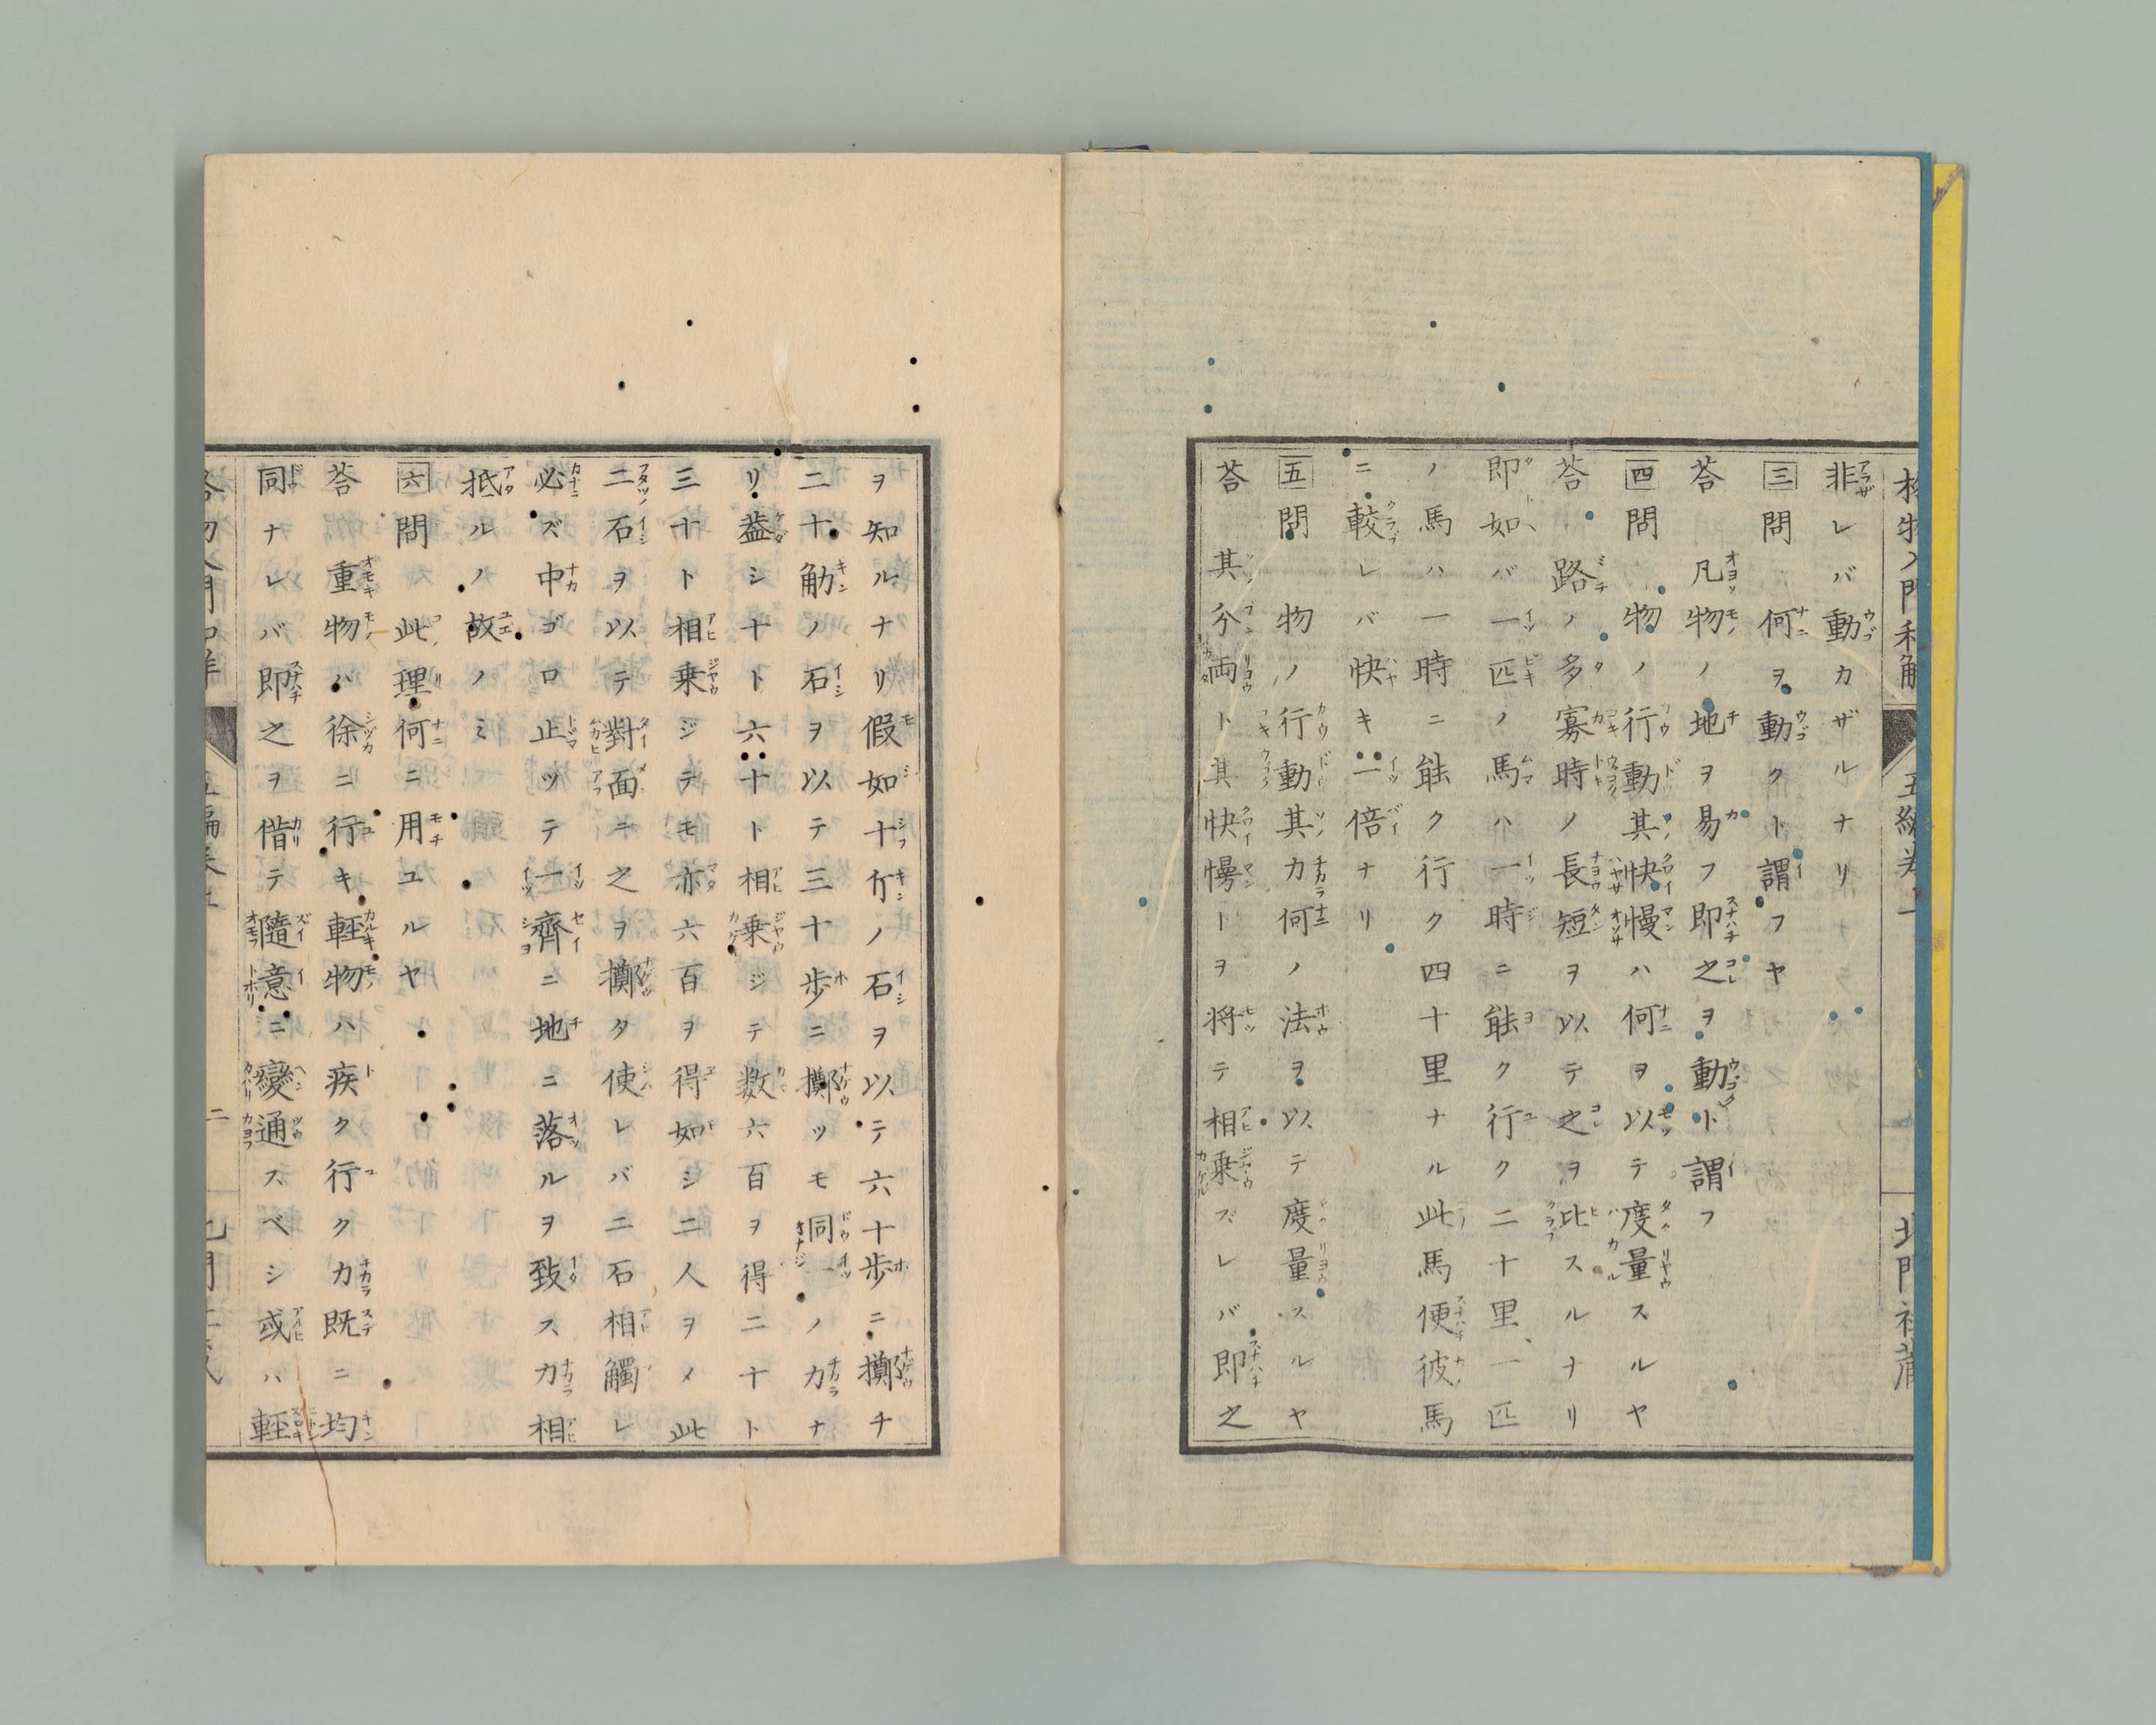 格物入門和解 五編卷一 北門社藏
非レバ動カザルナリ
三問 何ヲ動クト謂フヤ
荅 凡物ノ地ヲ易フ即之ヲ動ト謂フ
四問 物ノ行動其快慢ハ何ヲ以テ度量スルヤ
荅 路ノ多寡時ノ長短ヲ以テ之ヲ比スルナリ
即如バ一匹ノ馬ハ一時ニ能ク行ク二十里一匹
ノ馬ハ一時ニ能ク行ク四十里ナル此馬便彼馬
ニ較レバ快キ一倍ナリ
五問 物ノ行動其力何ノ法ヲ以テ度量スルヤ
荅 其分両ト其快慢トヲ将テ相乗ズレバ即之
ヲ知ルナリ假如十斤ノ石ヲ以テ六十歩ニ擲チ
二十觔ノ石ヲ以テ三十歩ニ擲ツモ同一ノ力ナ
リ葢シ十ト六十ト相乗ジテ数六百ヲ得二十ト
三十ト相乗ジテモ亦六百ヲ得如シ二人ヲメ此
二石ヲ以テ對面ニ之ヲ擲タ使レバ二石相觸レ
必ズ中ゴロ止ツテ一齊ニ地ニ落ルヲ致ス力相
抵ルノ故ノミ
六問 此理何ニ用ユルヤ
荅 重物ハ徐ニ行キ輕物ハ疾ク行ク力既ニ均
同ナレバ即之ヲ借テ隨意ニ變通スベシ或ハ輕